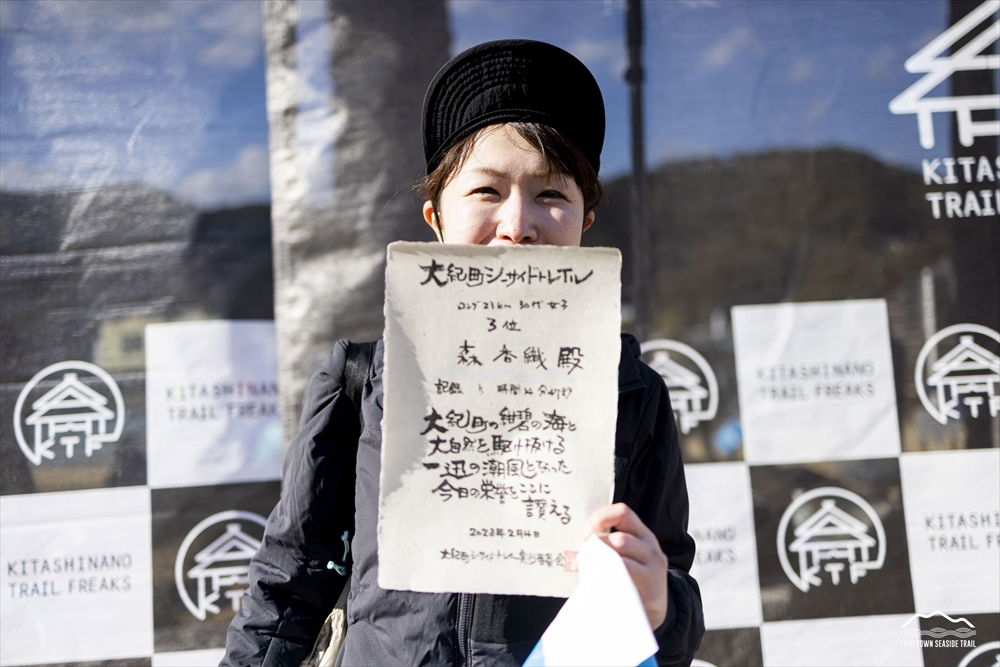 大紀町シーサイドトレイル
ロング23km 30代女子
3位
森香織殿
大紀町の紺碧の海と
大自然を駆け抜ける
一迅の潮風となった
今日の栄誉をここに
讃える
2023年2月4日
大紀町シーサイドトレイル実行委員会
KITASHINANO
TRAIL FREAKS
KTF
KITASHINANO
TRAIL FREAKS
KTF
KITAS
TRAIL
KITASHINANO
TRAIL FREAKS
KTF
KTF
KITASHINANO
TRAIL FREAKS
TAIKI TOWN SEASIDE TRAIL